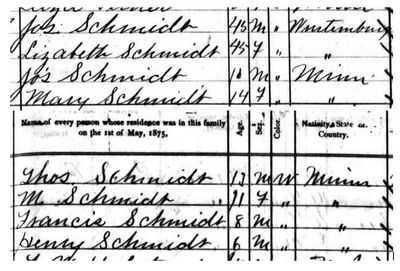 Jos Schmidt 45 M " Wurtemburg
Lizabeth Schmidt 45 F " "
Jos Schmidt 10 M " Minn
Mary Schmidt 14 F " "
Name of every person whose residence was in this family on the 1st of May, 1875.
Age.
Sex.
Color.
Nativity, State or Country.
Thos Schmidt 13 M W Minn
M Schmidt 11 F " "
Francis Schmidt 8 M " "
Henry Schmidt 6 M " "